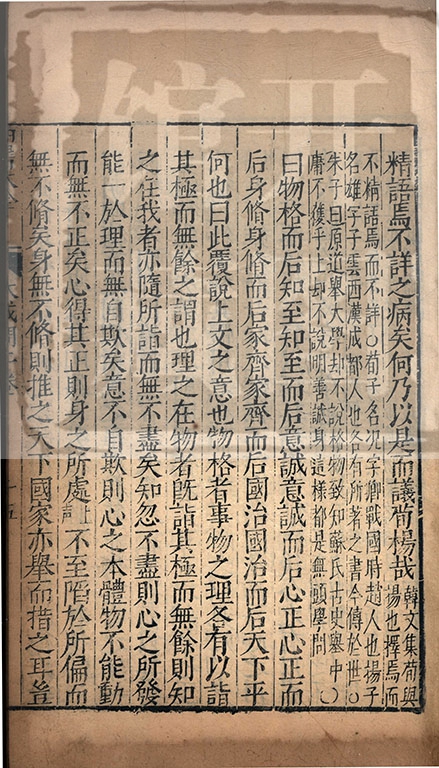 精語焉不詳之病矣何乃以是而議荀楊哉韓文集荀與
揚也擇焉而
不精語焉而不詳○荀子名况字卿戰國時趙人也揚子
名雄字子雲西漢成都人也各有所著之書今傳於世○
朱子曰原道舉大學却不說格物致知蘇氏古史舉中○
庸不獲乎上却不說明善誠身這樣都是無頭學問
曰物格而后知至知至而后意誠意誠而后心正心正而
后身脩身脩而后家齊家齊而后國治國治而后天下平
何也曰此覆說上文之意也物格者事物之理各有以詣
其極而無餘之謂也理之在物者旣詣其極而無餘則知
之在我者亦隨所詣而無不盡矣知忽不盡則心之所發
能一於理而無自欺矣意不自欺則心之本體物不能動
而無不正矣心得其正則身之所處上聲不至陷於所偏而
無不脩矣身無不脩則推之天下國家亦舉而措之耳豈